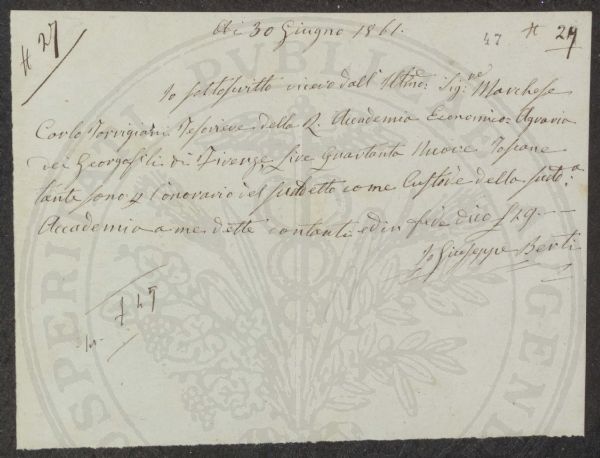 N 27
Ai 30 Giugno 1861.
47 N 27
Io sottoscritto ricevo dall' Illmo: Sig:re Marchese
Carlo Torrigiani Tesoriere della R. Accademia Economico=Agraria
dei Georgofili di Firenze, Lire Quaranta Nuove Toscane
tante sono p l'onorario del suddetto come Custode della sudd:a
Accademia a me dette contanti ed in fede dico £
Io Giuseppe Berti
PROSPERITATI PUBLICAE AUGENDAE